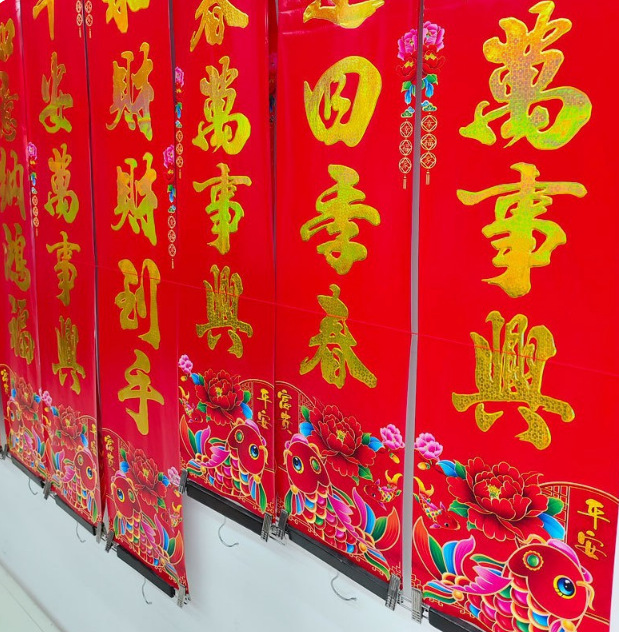 納鴻福
安萬事興
平安
财财到手
春萬事興
平安
迎四季春
富贵
萬事興
平安